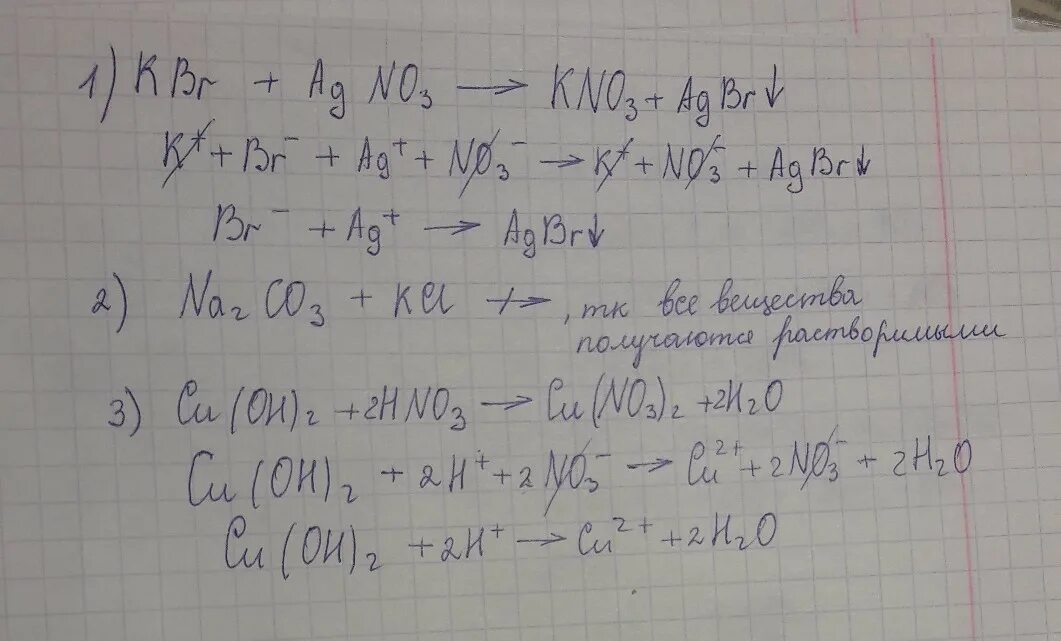 1) KBr + AgNO₃ → KNO₃ + AgBr↓
K⁺ + Br⁻ + Ag⁺ + NO₃⁻ → K⁺ + NO₃⁻ + AgBr↓
Br⁻ + Ag⁺ → AgBr↓
2) Na₂CO₃ + KCl ↛ , тк все вещества
получаются растворимыми
3) Cu(OH)₂ + 2HNO₃ → Cu(NO₃)₂ + 2H₂O
Cu(OH)₂ + 2H⁺ + 2NO₃⁻ → Cu²⁺ + 2NO₃⁻ + 2H₂O
Cu(OH)₂ + 2H⁺ → Cu²⁺ + 2H₂O